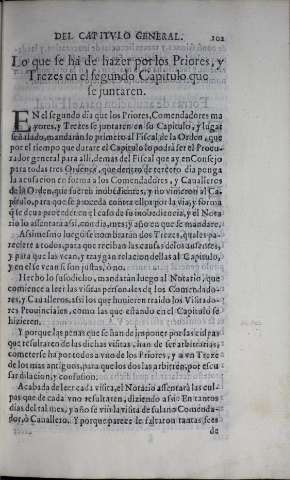 DEL CAPITVLO GENERAL. 102
Lo que se ha de hazer por los Priores, y
Trezes en el segundo Capitulo que
se juntaren.
EN el segundo dia que los Priores, Comendadores ma
yores, y Trezes se juntaren en su Capitulo, y lugar
señalado, mandarán lo primero al Fiscal de la Orden, que
por el tiempo que durare el Capitulo lo podrá ser el Procu-
rador general para alli, demas del Fiscal que ay en Consejo
para todas tres Ordenes, que dentro de tercero dia ponga
la acusacion en forma a los Comendadores, y Caualleros
de la Orden, que fueren inobedientes, y no vinieron al Ca-
pitulo, para que se proceda contra ellos por la via, y forma
q̃ se deua proceder en el caso de su inobediencia, y el Nota
rio lo assentara assi, con dia, mes, y año en que se mandare.
Assimismo luego se nombrarán dos Trezes, quales pa-
reciere a todos, para que reciban las causas de los ausentes,
y para que las vean, y traygan relacion dellas al Capitulo,
y en el se vean si son justas, ò no.
Hecho lo susodicho, mandarán luego al Notario, que
comience a leer las visitas personales de los Comendado-
res, y Caualleros, assi los que huuieren traido los Visitado-
res Prouinciales, como las que estando en el Capitulo se
hizieren.
Y porque las penas que se han de imponer por las culpas
que resultaren de las dichas visitas, han de ser arbitrarias,
cometerse ha por todos a vno de los Priores, y a vn Treze
de los mas antiguos, para que los dos las arbitren, por escu
sar dilacion, y confusion.
Acabada de leer cada visita, el Notario assentará las cul-
pas que de cada vno resultaren, diziendo assi: En tantos
dias del tal mes, y año se vio la visita de fulano Comenda-
dor, ò Cauallero. Y porque parece le faltaron tantas
de